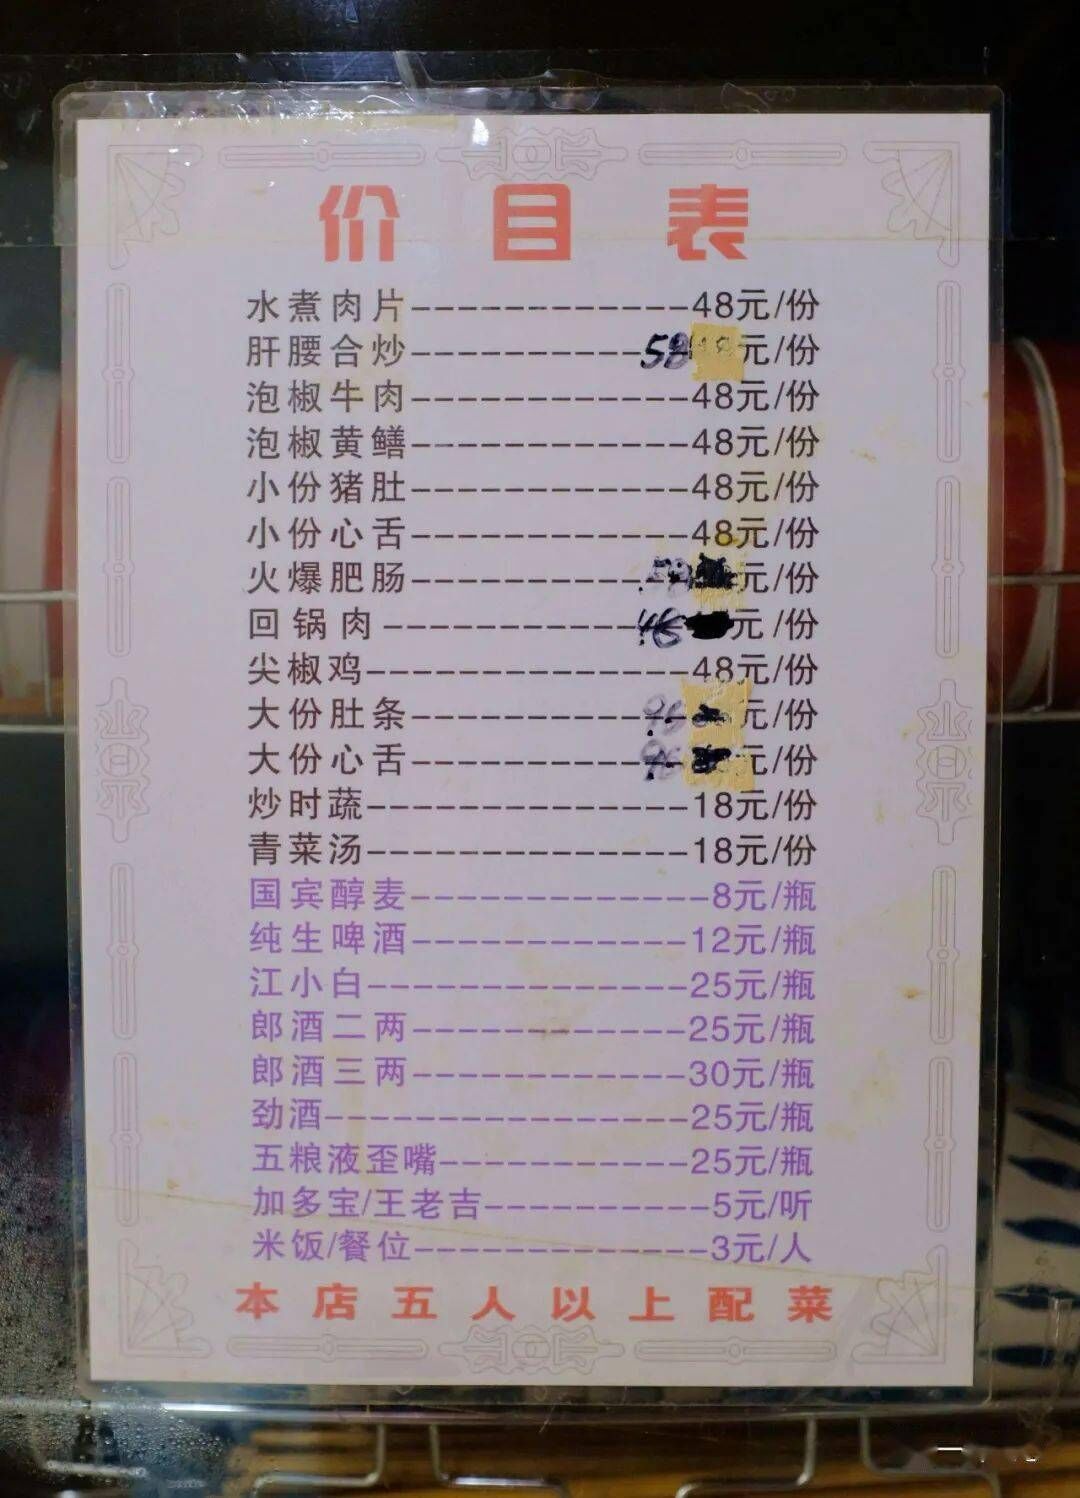 价目表
水煮肉片------------48元/份
肝腰合炒----------58元/份
泡椒牛肉------------48元/份
泡椒黄鳝------------48元/份
小份猪肚------------48元/份
小份心舌------------48元/份
火爆肥肠----------58元/份
回锅肉-----------48元/份
尖椒鸡--------------48元/份
大份肚条----------96元/份
大份心舌----------96元/份
炒时蔬--------------18元/份
青菜汤--------------18元/份
国宾醇麦-------------8元/瓶
纯生啤酒------------12元/瓶
江小白--------------25元/瓶
郎酒二两------------25元/瓶
郎酒三两------------30元/瓶
劲酒----------------25元/瓶
五粮液歪嘴-----------25元/瓶
加多宝/王老吉----------5元/听
米饭/餐位-------------3元/人
本店五人以上配菜